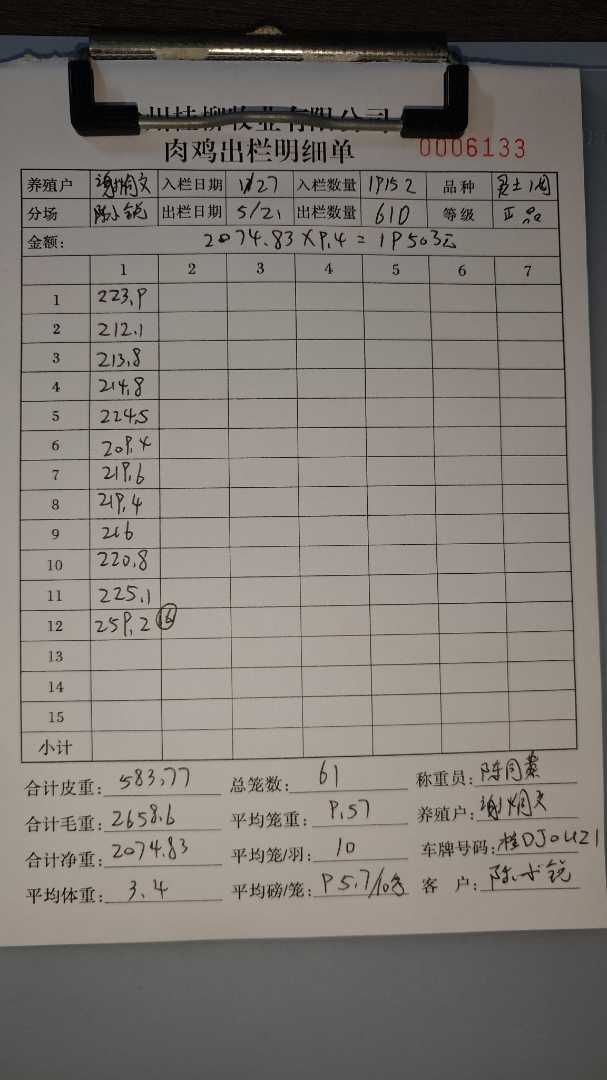 桂柳牧业有限公司
肉鸡出栏明细单 0006133
养殖户 谢炳文 入栏日期 1/27 入栏数量 19152 品种
分场 陈小锐 出栏日期 5/21 出栏数量 610 等级 正品
金额: 2074.83×9.4=19503元
1 2 3 4 5 6 7
1 223.9
2 212.1
3 213.8
4 214.8
5 224.5
6 209.4
7 219.6
8 219.4
9 216
10 220.8
11 225.1
12 259.2 16
13
14
15
小计
合计皮重: 583.77 总笼数: 61 称重员:
合计毛重: 2658.6 平均笼重: 9.57 养殖户: 谢炳文
合计净重: 2074.83 平均笼/羽: 10 车牌号码:
平均体重: 3.4 平均磅/笼: 95.7/10 客 户: 陈小锐